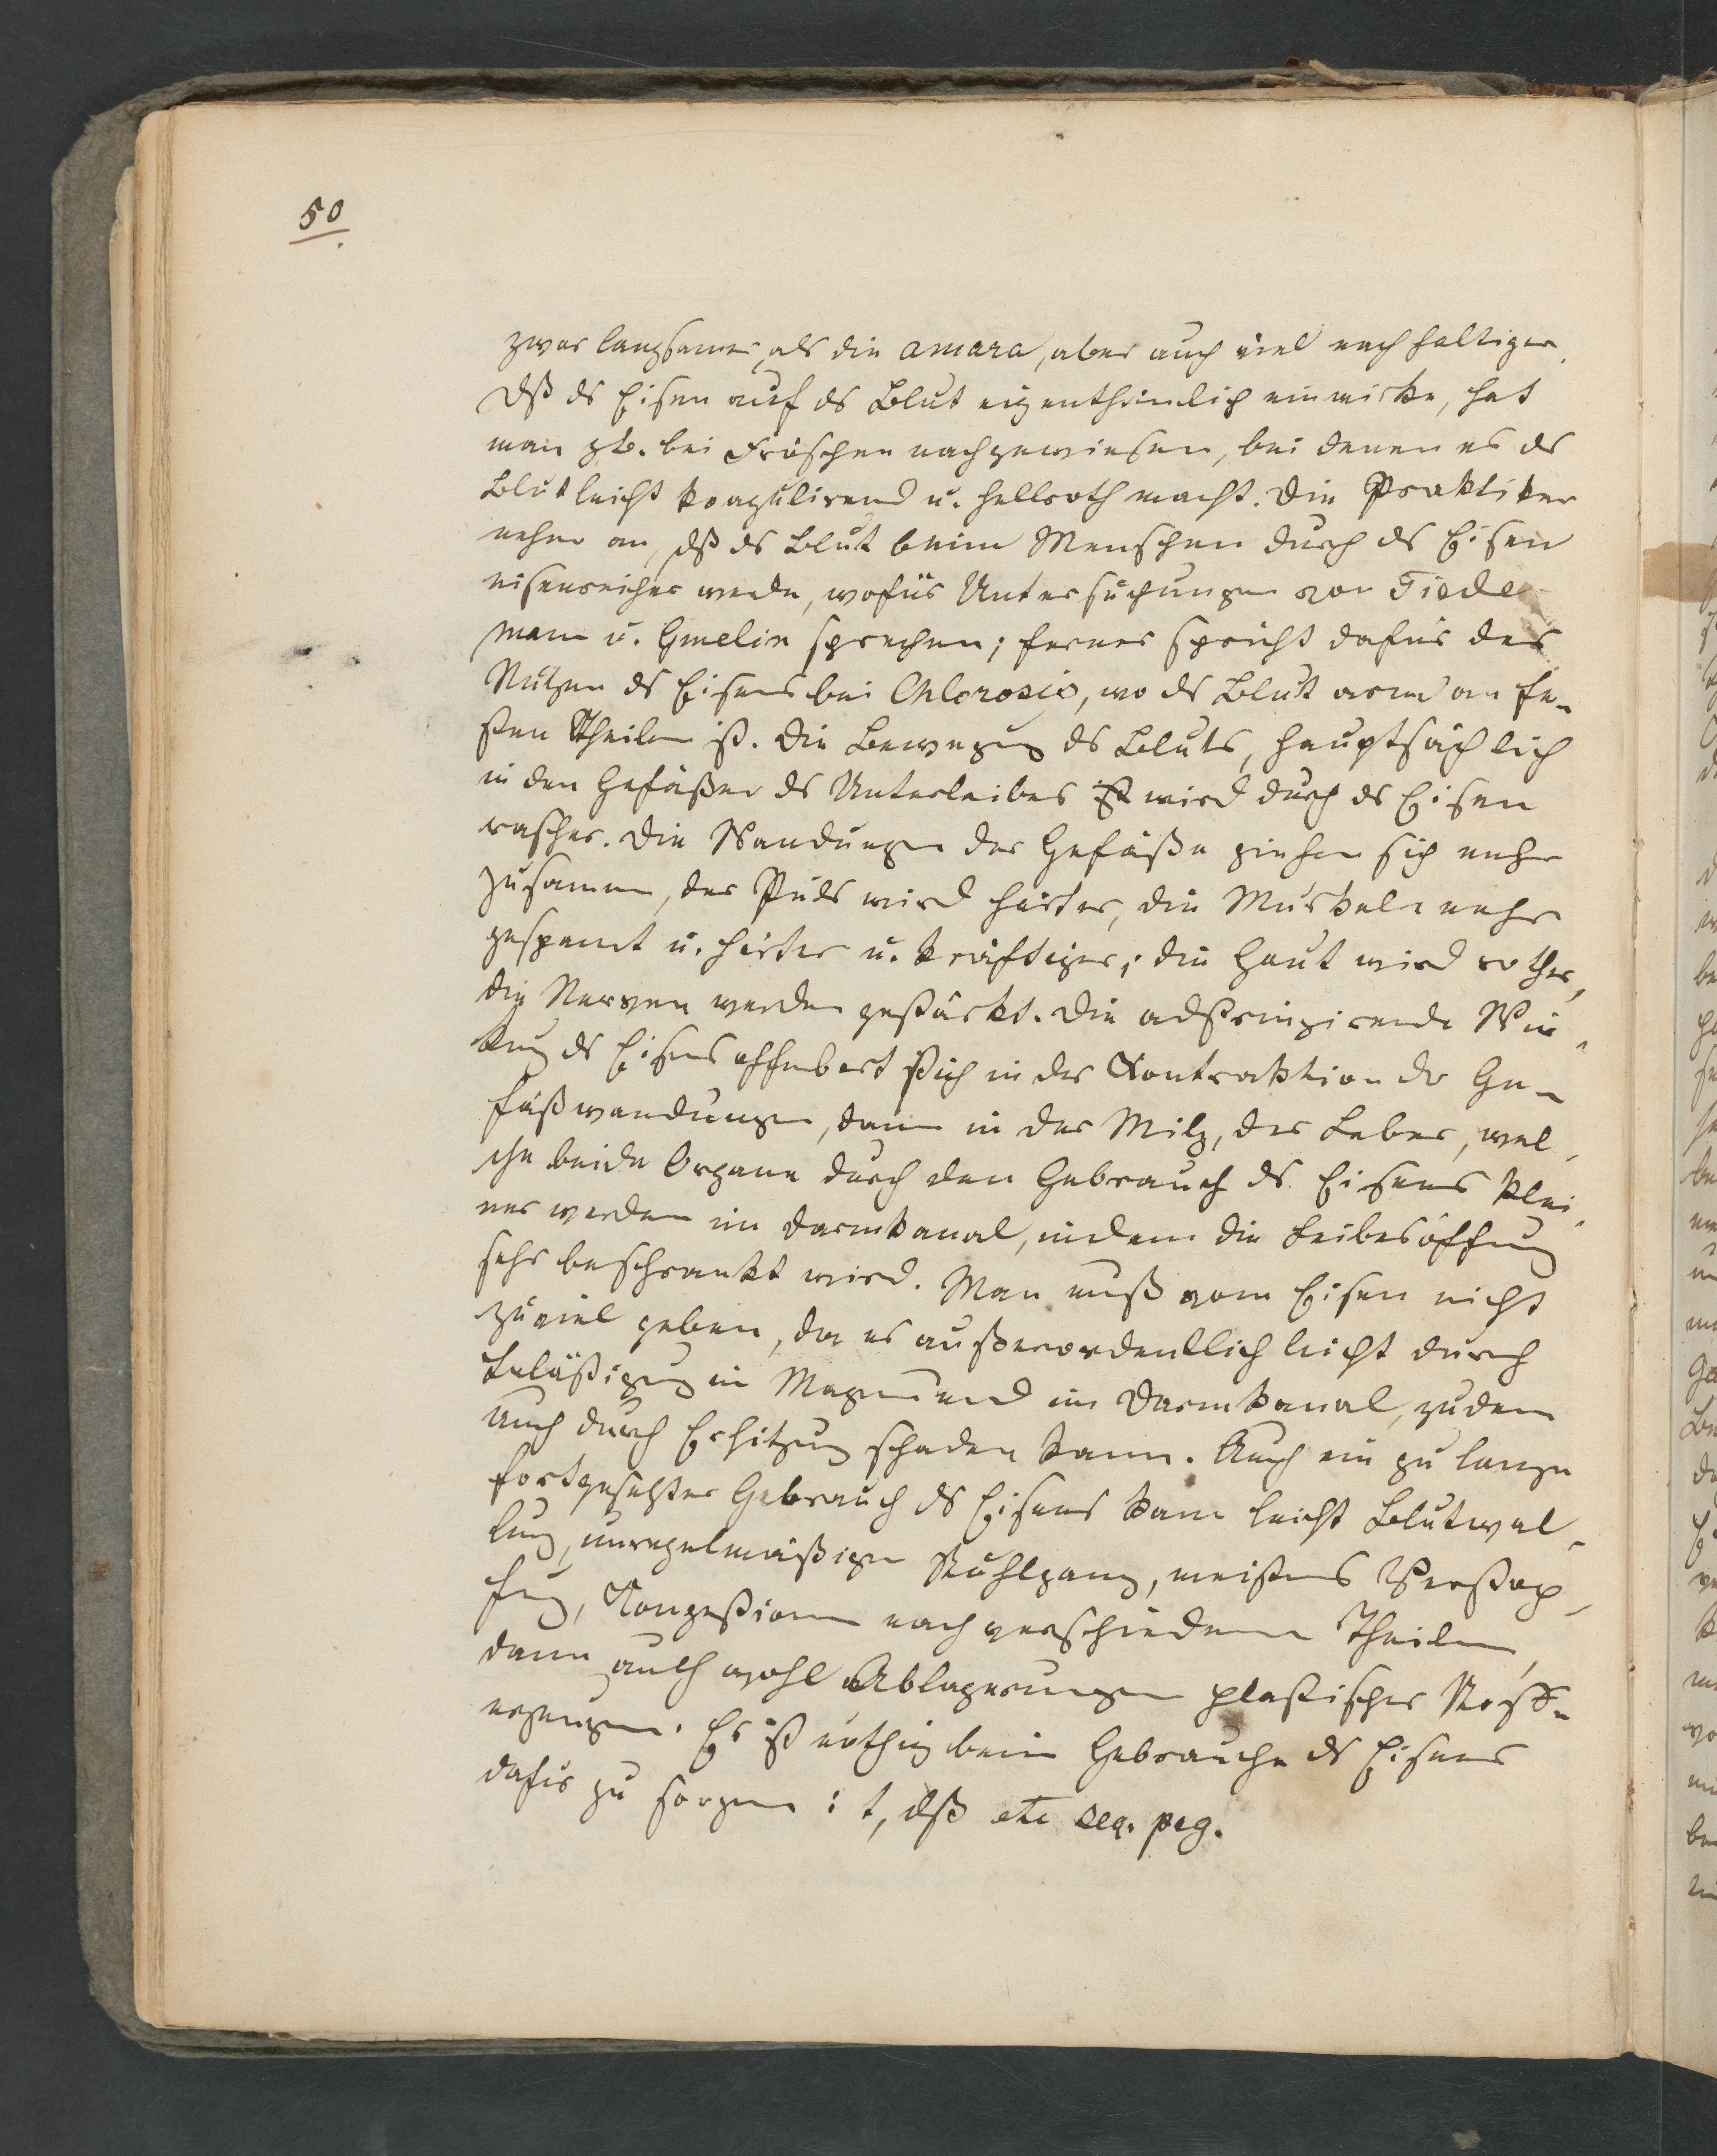 50
zwar langsamer, als die amara, aber auch viel nachhaltiger.
Dß ds Eisen auf ds Blut eigenthümlich einwirke, hat
man zb. bei Fröschen nachgewiesen, bei denen es ds
Blut leicht koagulirend u. hellroth macht. Die Praktiker
nehmen an, dß ds Blut beim Menschen durch ds Eisen
eisenreicher werde, wofür Untersuchungen von Tiede-
mann u. Gmelin sprechen; ferner spricht dafür der
Nutzen ds Eisens bei Chlorosis, wo ds Blut arm an fe-
sten Theilen ist. Die Bewegung ds Bluts, hauptsächlich
in den Gefäßen ds Unterleibes wird durch ds Eisen
rascher. Die Wandungen der Gefäße ziehen sich mehr
zusammen, der Puls wird härter, die Muskeln mehr
gespannt u. härter u. kräftiger; die Haut wird rother,
die Nerven werden gestärkt. Die adstringirende Wir-
kung ds Eisens offenbart sich in der Kontraktion der Ge-
fäßwandungen, dann in der Milz, der Leber, wel-
che beide Organe durch den Gebrauch ds Eisens klei-
ner werden im Darmkanal, indem die Leibesöffnung
sehr beschrankt wird. Man muß vom Eisen nicht
zuviel geben, da es außerordentlich leicht durch
Beläßigung im Magen und im Darmkanal, zudem
auch durch Erhitzung schaden kann. Auch ein zu lange
fortgesetzter Gebrauch ds Eisens kann leicht Blutwal-
lung, unregelmäßigen Stuhlgang, meistens Verstop-
fung, Kongestionen nach verschiedenen Theilen,
dann auch wohl Ablagerungen plastischer Stoffe
erzeugen. Es ist nöthig beim Gebrauche ds Eisens
dafür zu sorgen: 1, dß etc seq. pag.